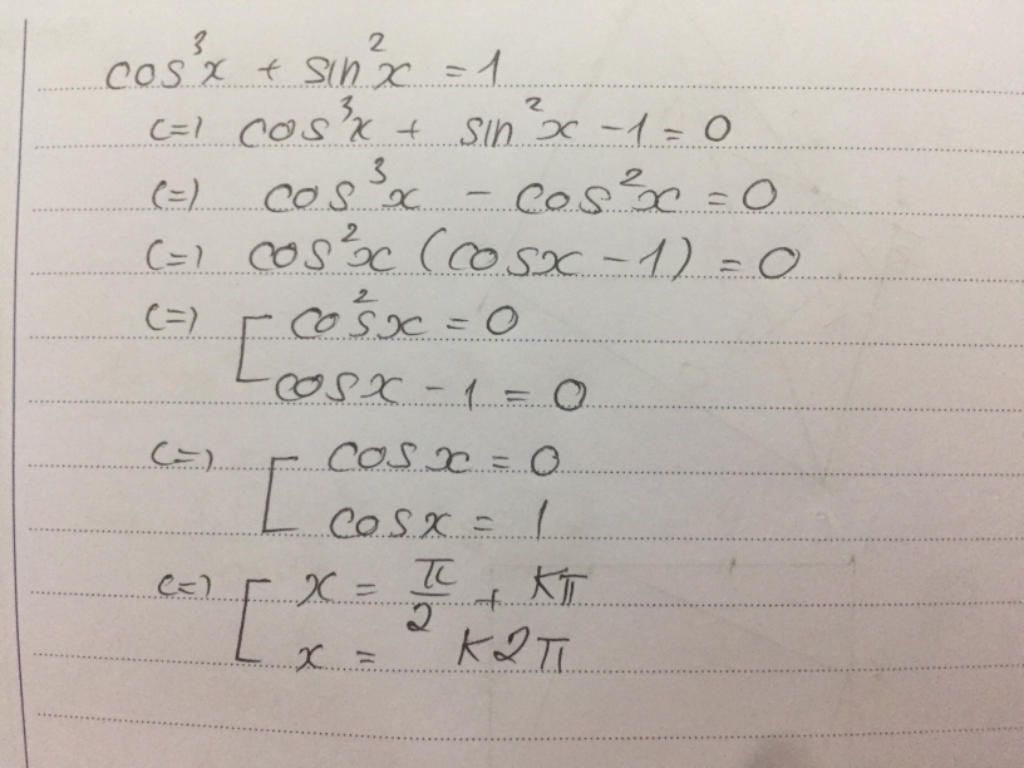 cos³x + sin²x = 1
<=> cos³x + sin²x - 1 = 0
<=> cos³x - cos²x = 0
<=> cos²x (cosx - 1) = 0
<=> [ cos²x = 0
cosx - 1 = 0
<=> [ cosx = 0
cosx = 1
<=> [ x = π/2 + kπ
x = k2π